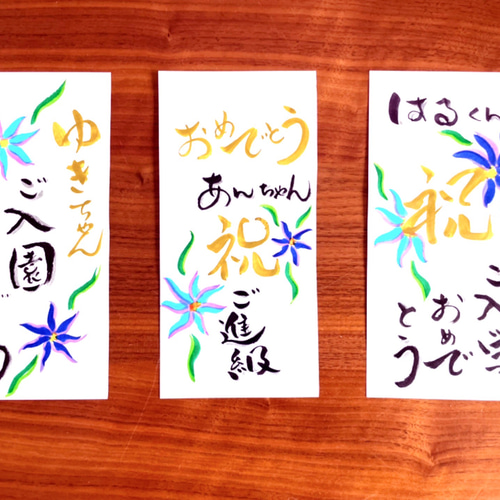 ゆきちゃん
ご入園
おめでとう
あんちゃん
祝
ご進級
はるくん
祝
ご入学
おめで
とう